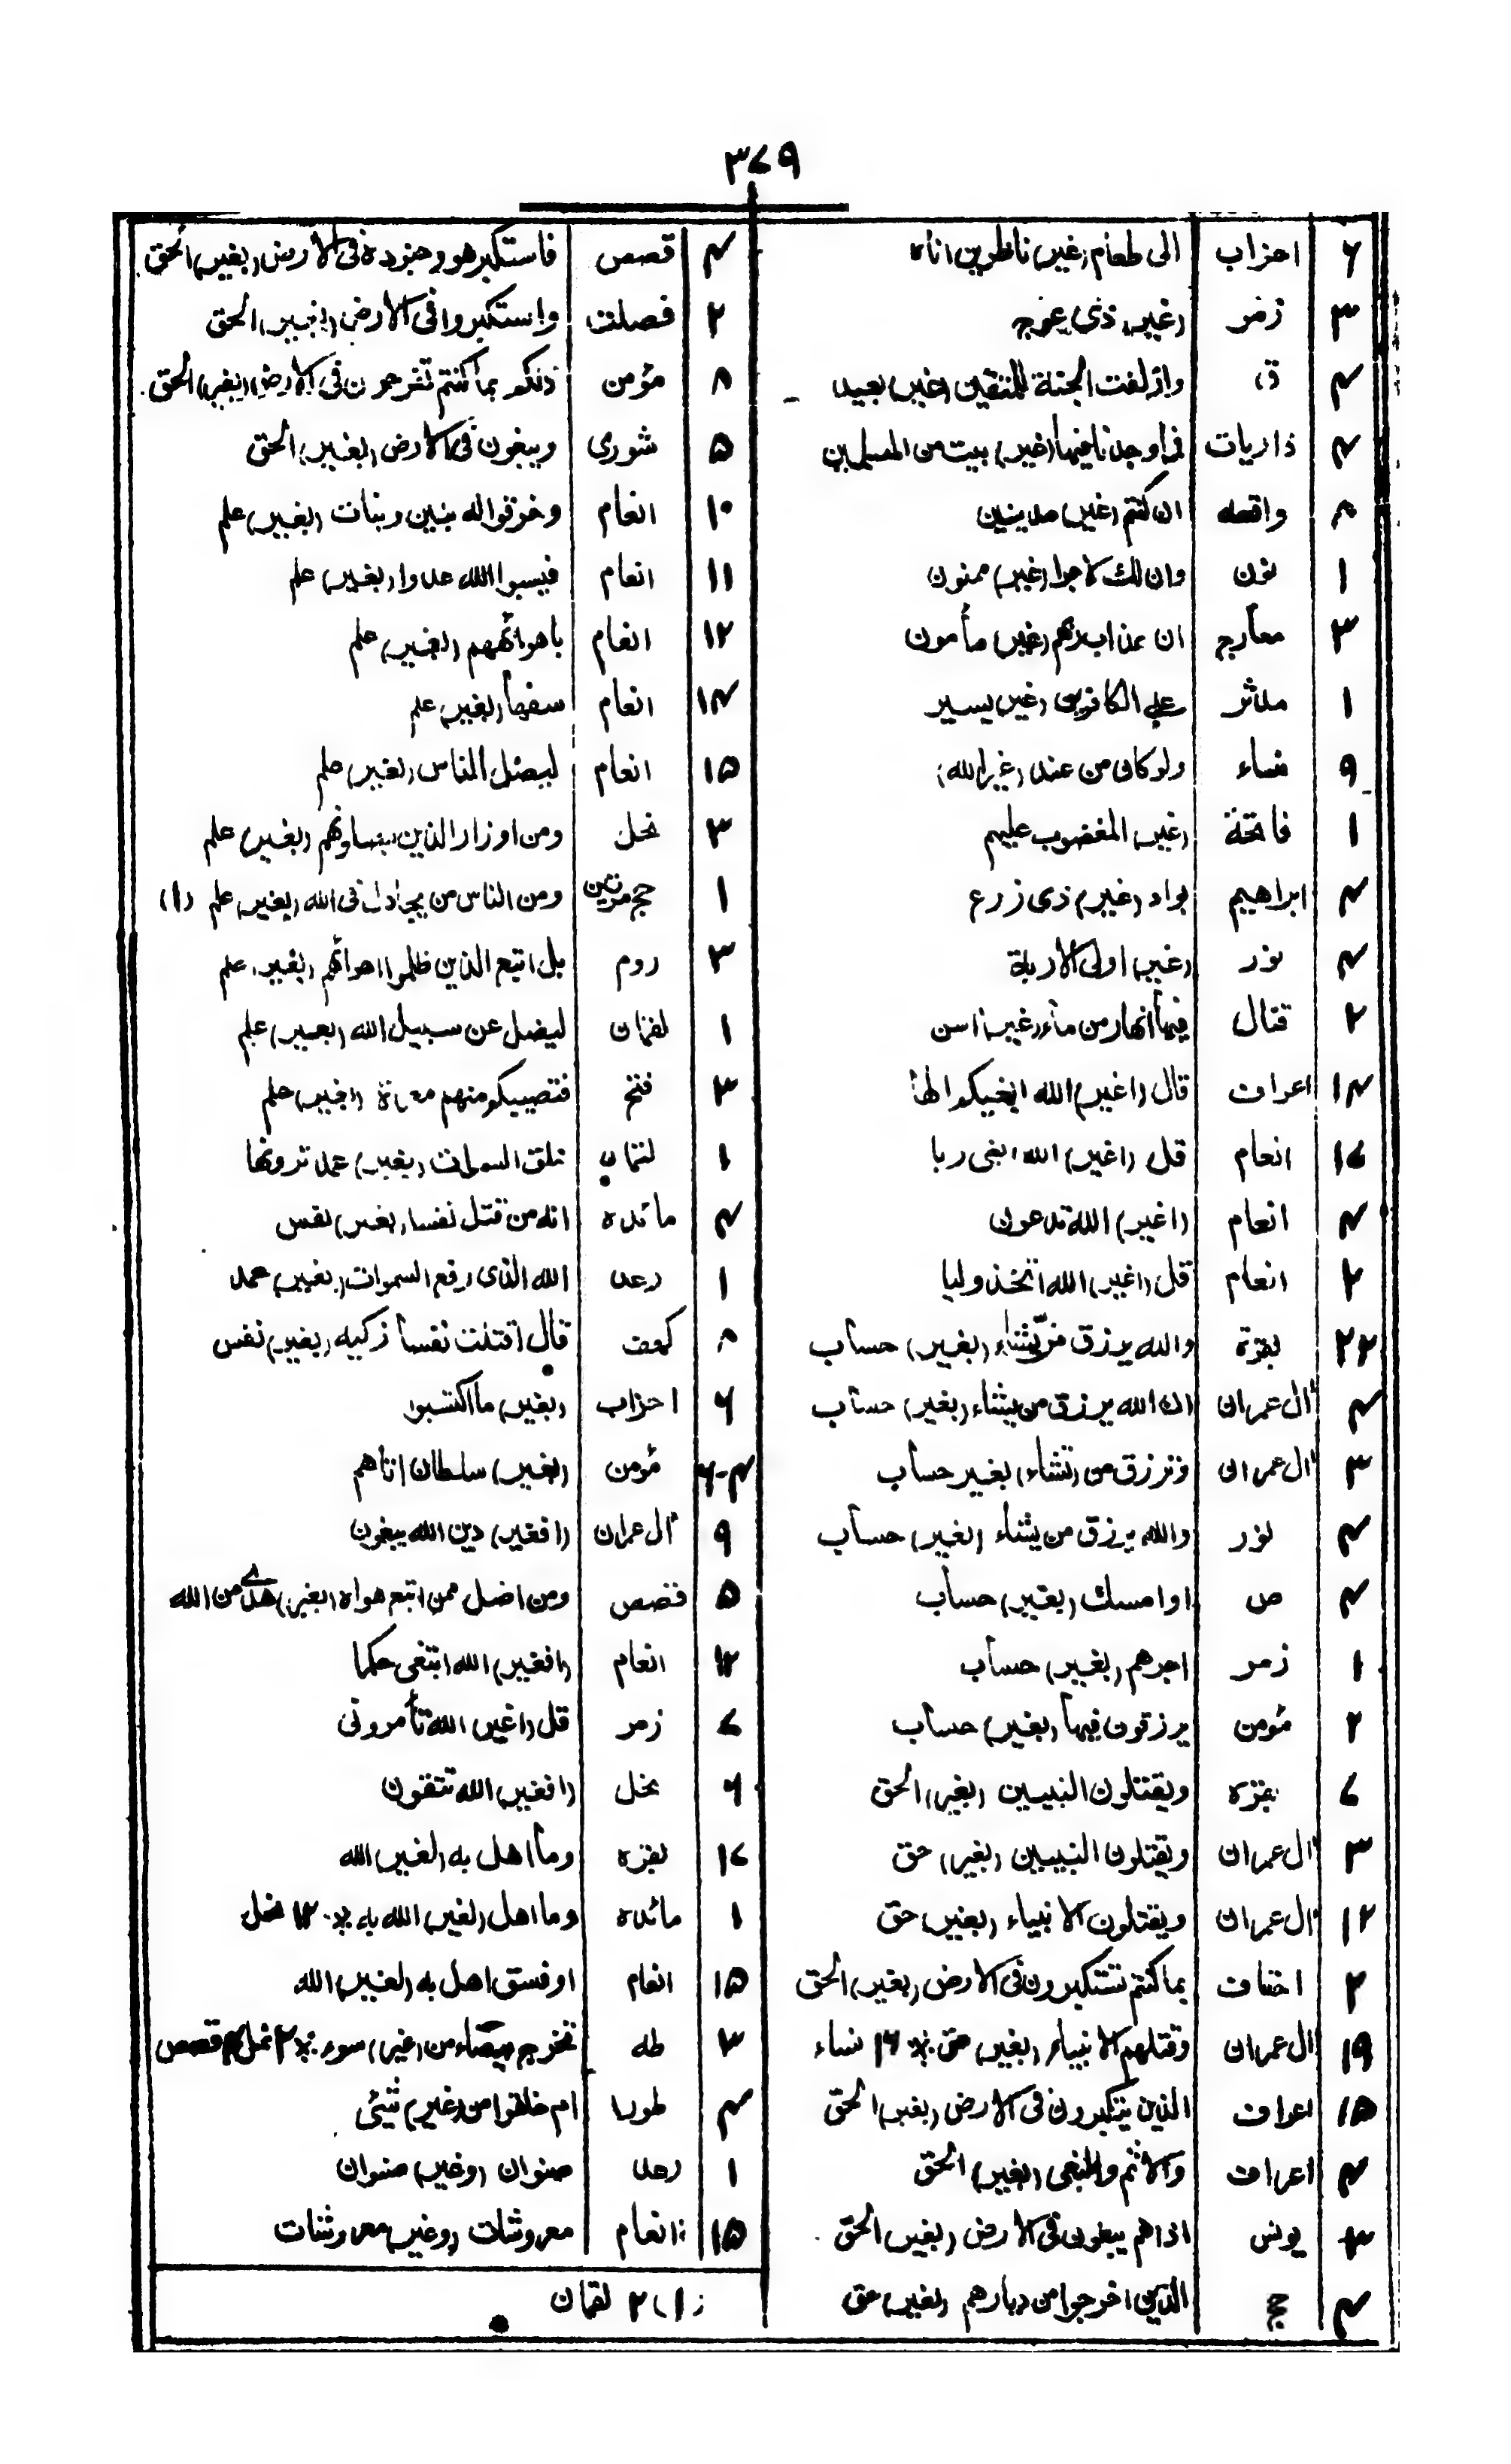 ۳۷۹
۶ احزاب الی طعام (غیر) ناظرین اناه
۳ زمر (غیر) ذی عوج
۳ ق وازلفت الجنة للمتقین (غیر) بعید
۲ ذاریات فما وجدنا فیها (غیر) بیت من المسلمین
واقعه ان کنتم (غیر) مدینین
۱ نون وان لک لاجرا (غیر) ممنون
۳ معارج ان عذاب ربهم (غیر) مأمون
۱ مدثر علی الکافرین (غیر) یسیر
۹ نساء ولو کان من عند (غیر الله)
۱ فاتحة (غیر) المغضوب علیهم
۴ ابراهیم بواد (غیر) ذی زرع
۴ نور (غیر) اولی الاربة
۲ قتال فیها انهار من ماء (غیر) اسن
۱۴ اعراف قال (اغیر) الله ابغیکم الها
۱۷ انعام قل (اغیر) الله ابغی ربا
۴ انعام (اغیر) الله تدعون
۲ انعام قل (اغیر) الله اتخذ ولیا
۲۲ بقرة والله یرزق من یشاء (بغیر) حساب
۴ اٰل عمران ان الله یرزق من یشاء (بغیر) حساب
۳ اٰل عمران وترزق من (تشاء) بغیر حساب
۴ نور والله یرزق من یشاء (بغیر) حساب
۴ ص او امسک (بغیر) حساب
۱ زمر اجرهم (بغیر) حساب
۲ مؤمن یرزقون فیها (بغیر) حساب
۷ بقره ویقتلون النبیین (بغیر) الحق
۳ اٰل عمران ویقتلون النبیین (بغیر) حق
۱۲ اٰل عمران ویقتلون الانبیاء (بغیر) حق
۲ احقاف بما کنتم تستکبرون فی الارض (بغیر) الحق
۱۹ اٰل عمران وقتلهم الانبیاء (بغیر) حق ٪ ۲۲ نساء
۱۵ اعراف الذین یتکبرون فی الارض (بغیر) الحق
۴ اعراف والاثم والبغی (بغیر) الحق
۳ یونس اذا هم یبغون فی الارض (بغیر) الحق
۴ حج الذین اخرجوا من دیارهم (بغیر) حق
۴ قصص فاستکبر هو وجنوده فی الارض (بغیر) الحق
۲ فصلت واستکبروا فی الارض (بغیر) الحق
۸ مؤمن ذلکم بما کنتم تفرحون فی الارض (بغیر) الحق
۵ شوری ویبغون فی الارض (بغیر) الحق
۱۰ انعام وخرقوا له بنین وبنات (بغیر) علم
۱۱ انعام فیسبوا الله عدوا (بغیر) علم
۱۲ انعام باهوائهم (بغیر) علم
۱۴ انعام سفها (بغیر) علم
۱۵ انعام لیضل الناس (بغیر) علم
۳ نحل ومن اوزار الذین یضلونهم (بغیر) علم
۱ حج مرتین ومن الناس من یجادل فی الله (بغیر) علم (۱)
۳ روم بل اتبع الذین ظلموا اهوائهم (بغیر) علم
۱ لقمان لیضل عن سبیل الله (بغیر) علم
۳ فتح فتصیبکم منهم معرة (بغیر) علم
۱ لقمان خلق السموات (بغیر) عمد ترونها
۴ مائده انه من قتل نفسا (بغیر) نفس
۱ رعد الله الذی رفع السموات (بغیر) عمد
کهف قال اقتلت نفسا زکیه (بغیر) نفس
۶ احزاب (بغیر) ما اکتسبوا
۴-۶ مؤمن (بغیر) سلطان اتاهم
۹ اٰل عمران (افغیر) دین الله یبغون
۵ قصص ومن اضل ممن اتبع هواه (بغیر) هدی من الله
۱۴ انعام (افغیر) الله ابتغی حکما
۷ زمر قل (اغیر) الله تأمرونی
۶ نحل (افغیر) الله تتقون
۱۷ بقره وما اهل به (لغیر) الله
۱ مائده وما اهل (لغیر) الله به ٪ ۱۲ نحل
۱۵ انعام او فسق اهل به (لغیر) الله
۳ طه تخرج بیضاء من (غیر) سوء ٪ ۲ نمل ۴ قصص
۴ طور ام خلقوا من (غیر) شیئی
۱ رعد صنوان (وغیر) صنوان
۱۵ انعام معروشات (وغیر) معروشات
(۱) ۲ لقمان